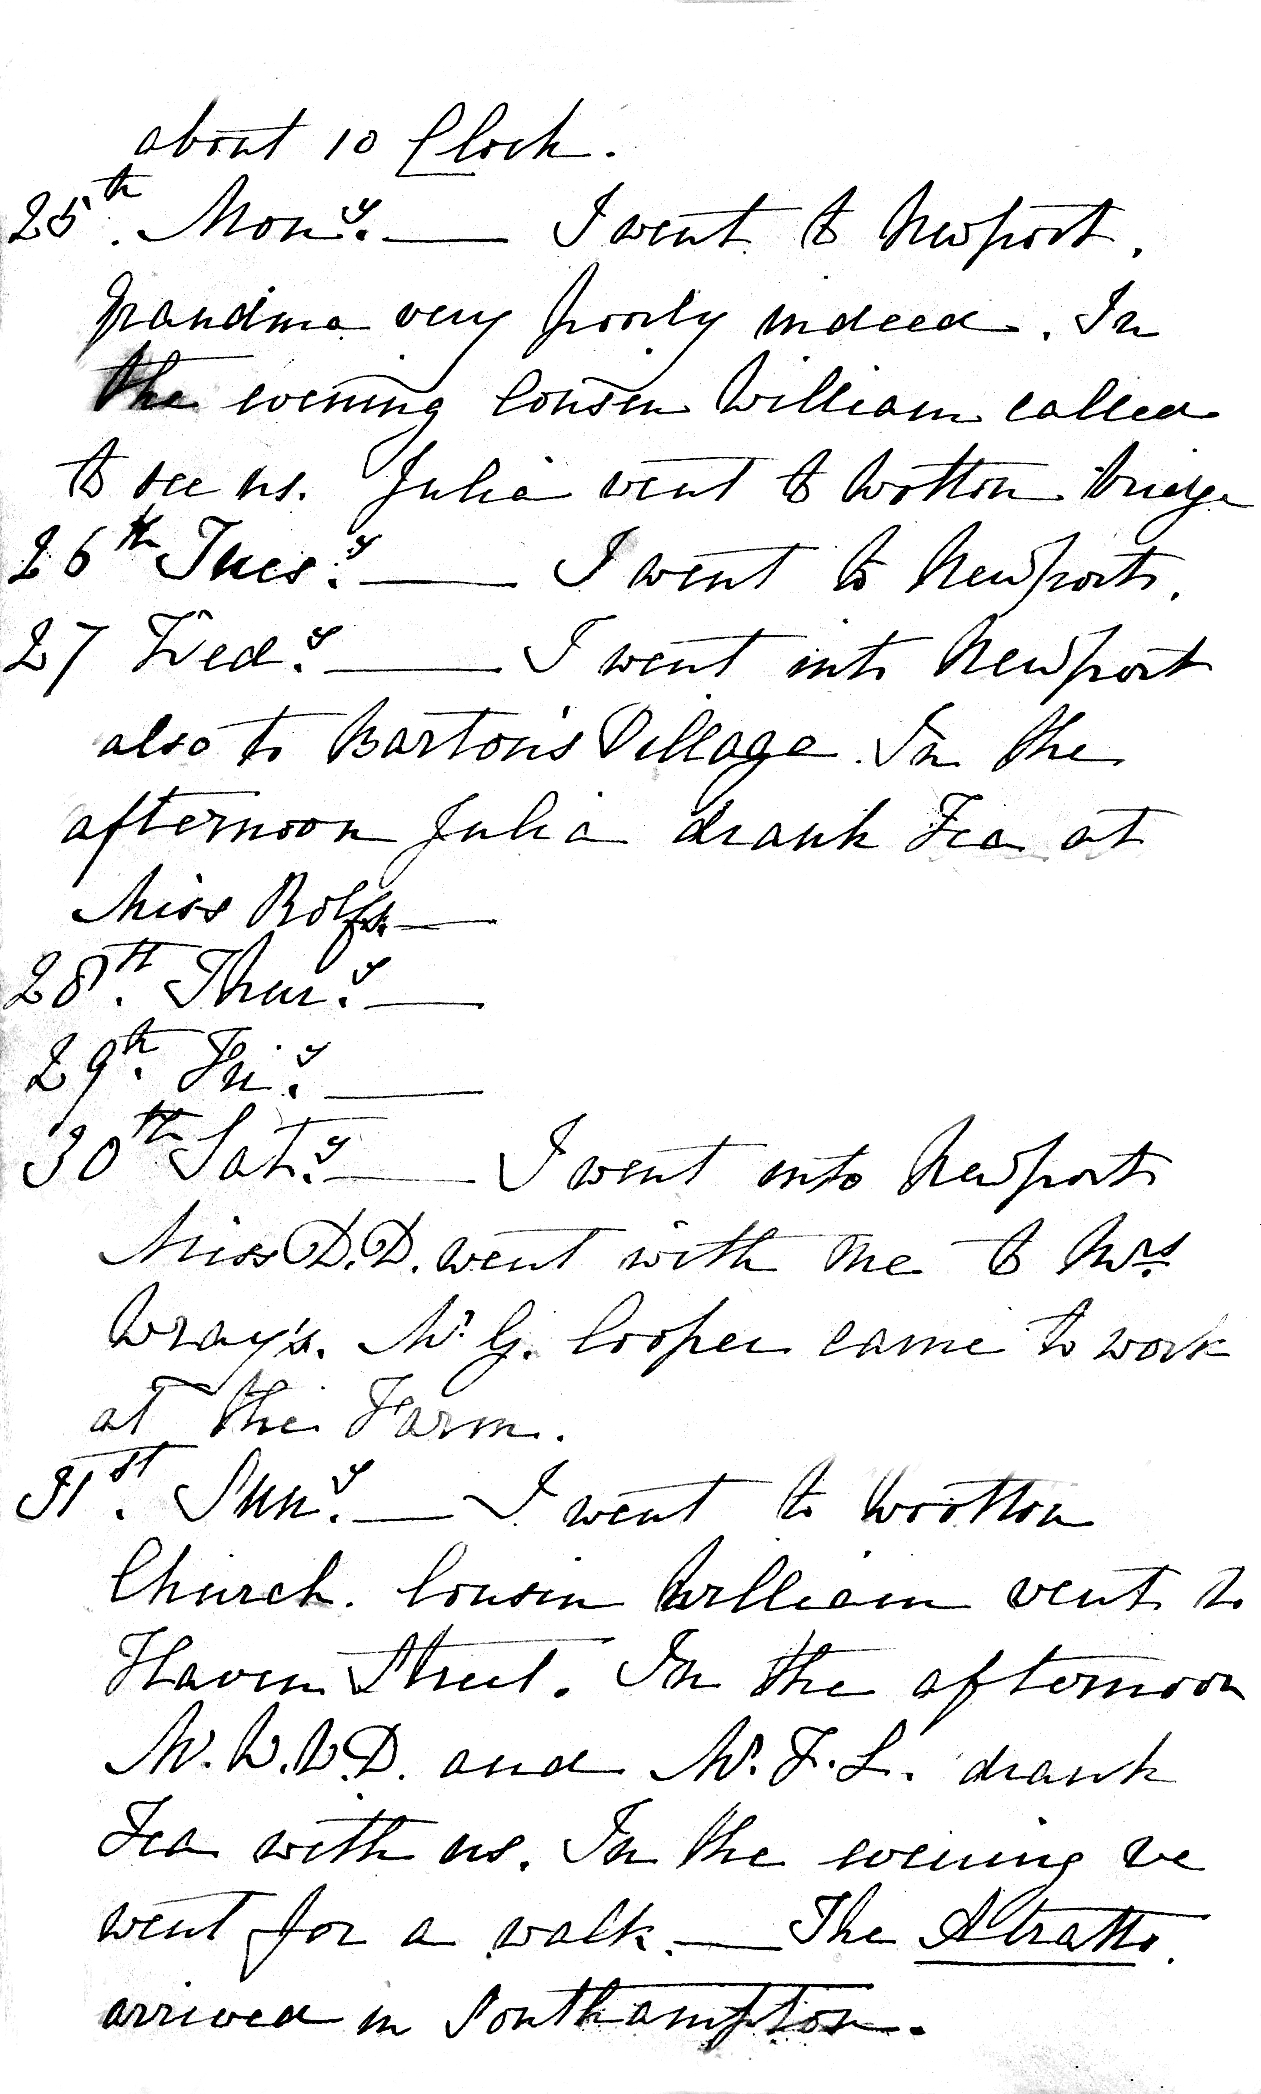 about 10 Clock.
25th. Mony. — I went to Newport.
Grandma very poorly indeed. In
the evening Cousin William called
to see us. Julia went to Wotton bridge
26th Tuesy. — I went to Newport.
27 Wedy. — I went into Newport
also to Barton's Village. In the
afternoon Julia drank Tea at
Miss Rolfs. —
28th. Thury. —
29th. Friy. —
30th Saty. — I went into Newport
Miss D.D. went with me to Mrs
Wray's. Mr G. Cooper came to work
at the Farm.
31st. Suny. — I went to Wootton
Church. Cousin William went to
Haven Street. In the afternoon
M. W.W.D. and Mr. F. L. drank
Tea with us. In the evening we
went for a walk. — The Atratto.
arrived in Southampton.